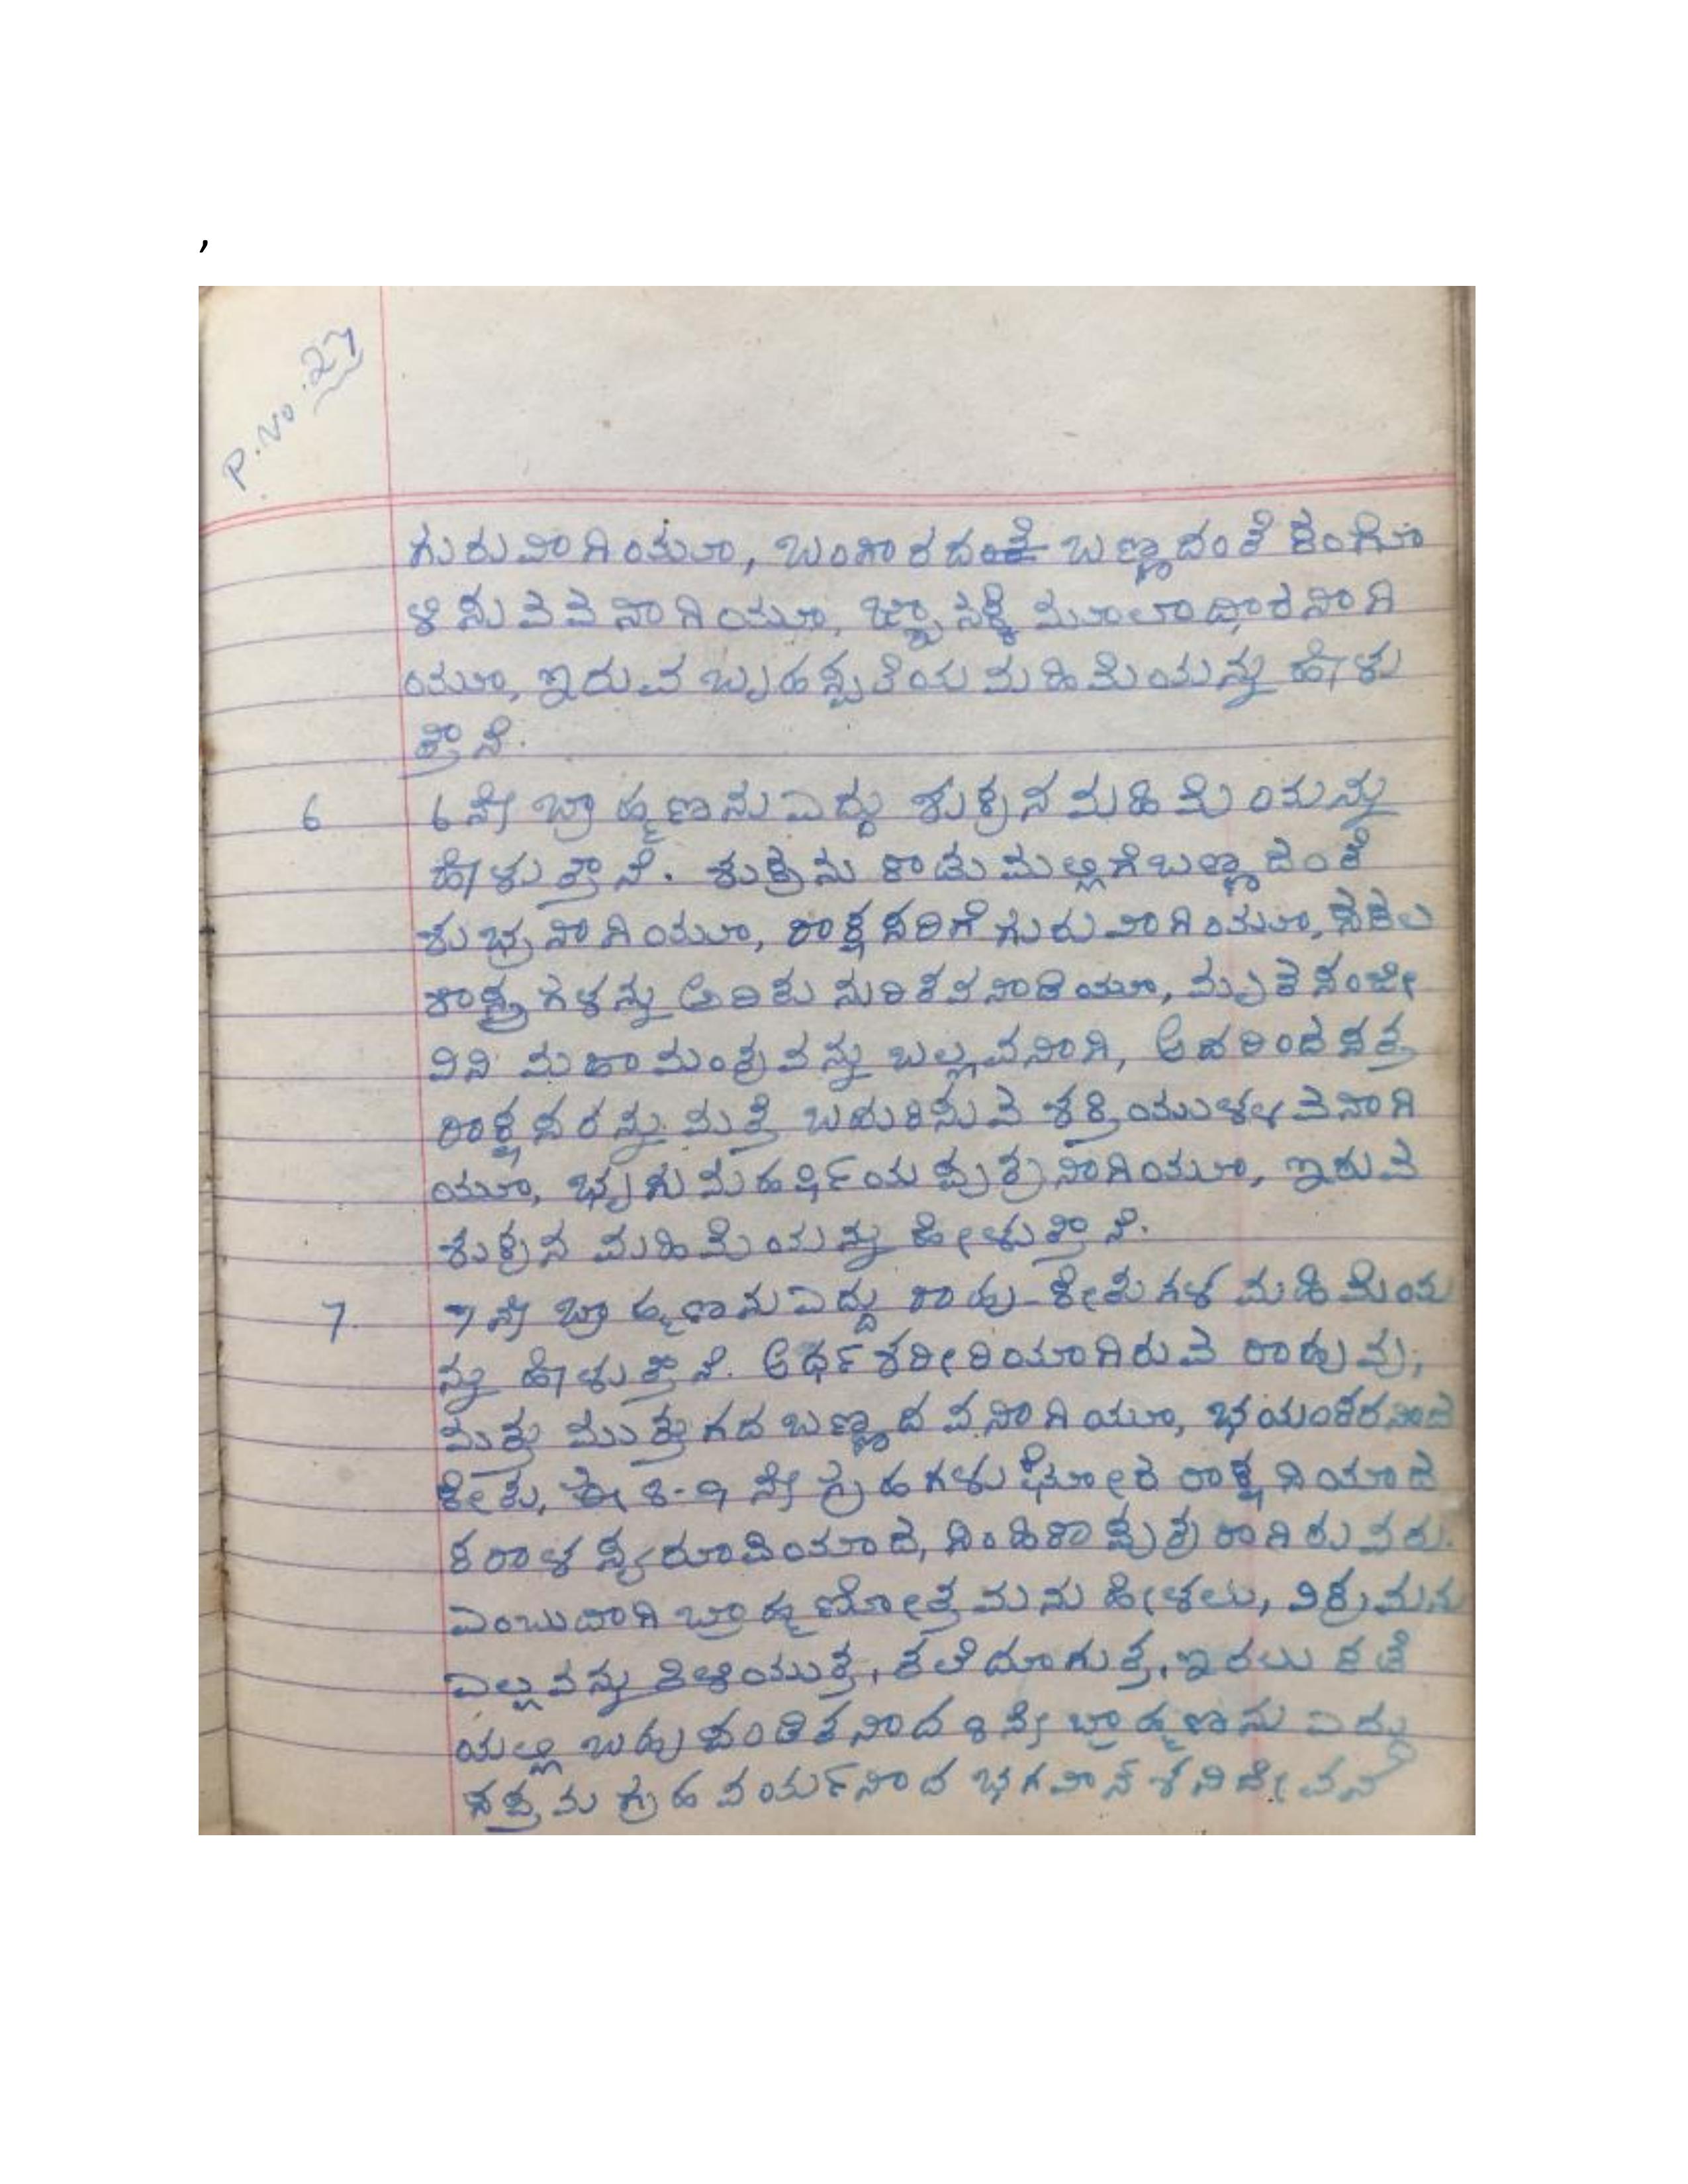 ,
P. No. 27
ಗುರುವಾಗಿಯೂ, ಬಂಗಾರದಂತೆ ಬಣ್ಣದಂತೆ ಕಂಗೊ
ಳಿಸುವವನಾಗಿಯೂ, ಜ್ಞಾನಕ್ಕೆ ಮೂಲಾಧಾರನಾಗಿ
ಯೂ, ಇರುವ ಬೃಹಸ್ಪತಿಯ ಮಹಿಮೆಯನ್ನು ಹೇಳು
ತ್ತಾನೆ.
6 6 ನೇ ಬ್ರಾಹ್ಮಣನು ಎದ್ದು ಶುಕ್ರನ ಮಹಿಮೆಯನ್ನು
ಹೇಳುತ್ತಾನೆ. ಶುಕ್ರನು ಕಾಡುಮಲ್ಲಿಗೆ ಬಣ್ಣದಂತೆ
ಶುಭ್ರನಾಗಿಯೂ, ರಾಕ್ಷಸರಿಗೆ ಗುರುವಾಗಿಯೂ, ಸಕಲ
ಶಾಸ್ತ್ರಗಳನ್ನು ಅರಿತು ನುರಿತವನಾಡಿಯೂ, ಮೃತಸಂಜೀ
ವಿನಿ ಮಹಾಮಂತ್ರವನ್ನು ಬಲ್ಲವನಾಗಿ, ಅದರಿಂದ ಸತ್ತ
ರಾಕ್ಷಸರನ್ನು ಮತ್ತೆ ಬದುಕಿಸುವ ಶಕ್ತಿಯುಳ್ಳವನಾಗಿ
ಯೂ, ಭೃಗುಮಹರ್ಷಿಯ ಪುತ್ರನಾಗಿಯೂ, ಇರುವ
ಶುಕ್ರನ ಮಹಿಮೆಯನ್ನು ಹೇಳುತ್ತಾನೆ.
7. 7 ನೇ ಬ್ರಾಹ್ಮಣನು ಎದ್ದು ರಾಹು-ಕೇತುಗಳ ಮಹಿಮೆಯ
ನ್ನು ಹೇಳುತ್ತಾನೆ. ಅರ್ಧಶರೀರಿಯಾಗಿರುವ ರಾಹುವು,
ಮತ್ತು ಮುತ್ತುಗದ ಬಣ್ಣದವನಾಗಿಯೂ, ಭಯಂಕರನಾದ
ಕೇತು, ಈ 8-9 ನೇ ಗ್ರಹಗಳು ಘೋರ ರಾಕ್ಷಸಿಯಾದ
ಕರಾಳ ಸ್ವರೂಪಿಯಾದ, ಸಿಂಹಿಕಾ ಪುತ್ರರಾಗಿರುವರು.
ಎಂಬುದಾಗಿ ಬ್ರಾಹ್ಮಣೋತ್ತಮನು ಹೇಳಲು, ವಿಕ್ರಮನು
ಎಲ್ಲವನ್ನು ತಿಳಿಯುತ್ತ, ತಲೆದೂಗುತ್ತ, ಇರಲು ಕಡೆ
ಯಲ್ಲಿ ಬಹು ಪಂಡಿತನಾದ 8 ನೇ ಬ್ರಾಹ್ಮಣನು ಎದ್ದು
ಸಪ್ತಮ ಗ್ರಹವರ್ಯನಾದ ಭಗವಾನ್ ಶನಿದೇವನ